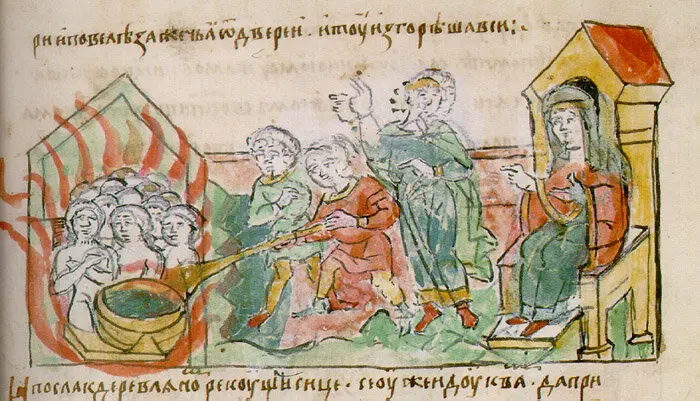 ри и повелѣ зажечьѧ ѿ двереи · и тоу изгорѣша вси:
И посла к деревлѧно рекоущи сице · се оуже идоу к ва · да при